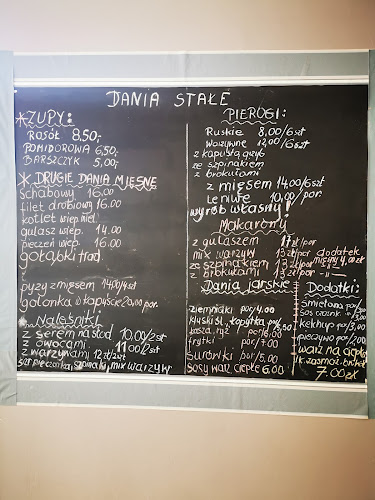 DANIA STAŁE
* ZUPY:
ROSÓŁ 8,50,-
POMIDOROWA 6,50,-
BARSZCZYK 5,00,-
* DRUGIE DANIA MIĘSNE
schabowy 16.00
filet drobiowy 16.00
kotlet wiep. miel.
gulasz wiep. 14.00
pieczeń wiep. 16.00
gołąbki trad.
pyzy z mięsem 14,00/4szt
golonka w kapuście 20,00 por.
Naleśniki
z serem na słod. 10,00/2szt
z owocami 11,00/2szt
z warzywami 12zł/2szt
ser pieczarka, szpinak, mix warzyw
PIEROGI:
Ruskie 8,00/6szt
Warzywne 12,00/6szt
z kapustą, grzyb
ze szpinakiem
z brokułami
z mięsem 14,00/6szt
Leniwe 10,00/por.
wyrób własny!
Makarony
z gulaszem 17zł/por
mix warzyw 13zł/por dodatek
ze szpinakiem 13zł/por
z brokułami 13zł/por
Dania jarskie
ziemniaki por/4.00
kluski śl., kopytka por/6,50
kasza, ryż por/6,00
frytki por/7.00
surówki por/5,00
sosy warz ciepłe 6.00
Dodatki:
śmietana por/
sos czosnk.
kekhup por/3,00
pieczywo por/
warz na ciepło
7.00 zł